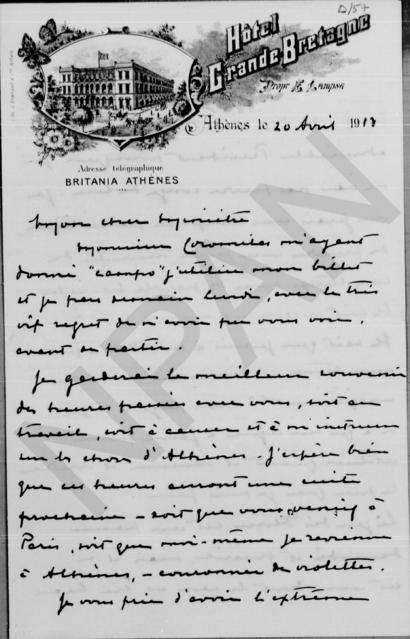 D/57
Hôtel
Grande Bretagne
Propr. Lampsa
Athènes le 20 Avril 1913
Adresse télégraphique
BRITANIA ATHÈNES
Mon cher Ministre
Monsieur Coromilas m'ayant
donné "campo" j'utilise mon billet
et je pars demain lundi, avec le très
vif regret de n'avoir pu vous voir,
avant de partir.
Je garderai le meilleur souvenir
des heures passées avec vous, soit au
travail, soit à causer et à m'instruire
sur les choses d'Athènes. J'espère bien
que ces heures auront une suite
prochaine – soit que vous veniez à
Paris, soit que moi-même je revienne
à Athènes, – couronnée de violettes.
Je vous prie d'avoir l'extrême
NPAN